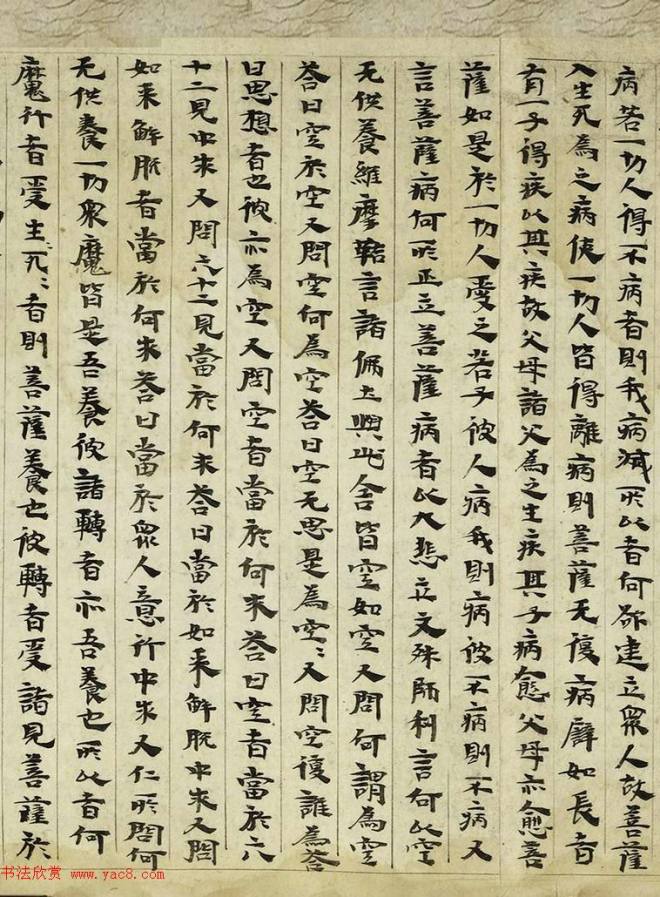 病若一切人得不病者則我病滅所以者何欲建立衆人故菩薩
入生死為之病使一切人皆得離病則菩薩无復病譬如長者
有一子得疾以其疾故父母諸父為之生疾其子病愈父母亦愈菩
薩如是於一切人愛之若子彼人病我則病彼不病則不病又
言菩薩病何所正立菩薩病者以大悲立文殊師利言何以空
无供養維摩詰言諸佛土與此舍皆空如空又問何謂為空
荅曰空於空又問空何為空荅曰空无思是為空〻又問空復誰為荅
曰思想者也彼亦為空又問空者當於何求荅曰空者當於六
十二見中求又問六十二見當於何求荅曰當於如來解脫中求又問
如來解脫者當於何求荅曰當於衆人意行中求又仁所問何
无供養一切衆魔皆是吾養彼諸轉者亦吾養也所以者何
魔行者受生死〻者則菩薩養也彼轉者受諸見菩薩於
书法欣赏 www.yac8.com